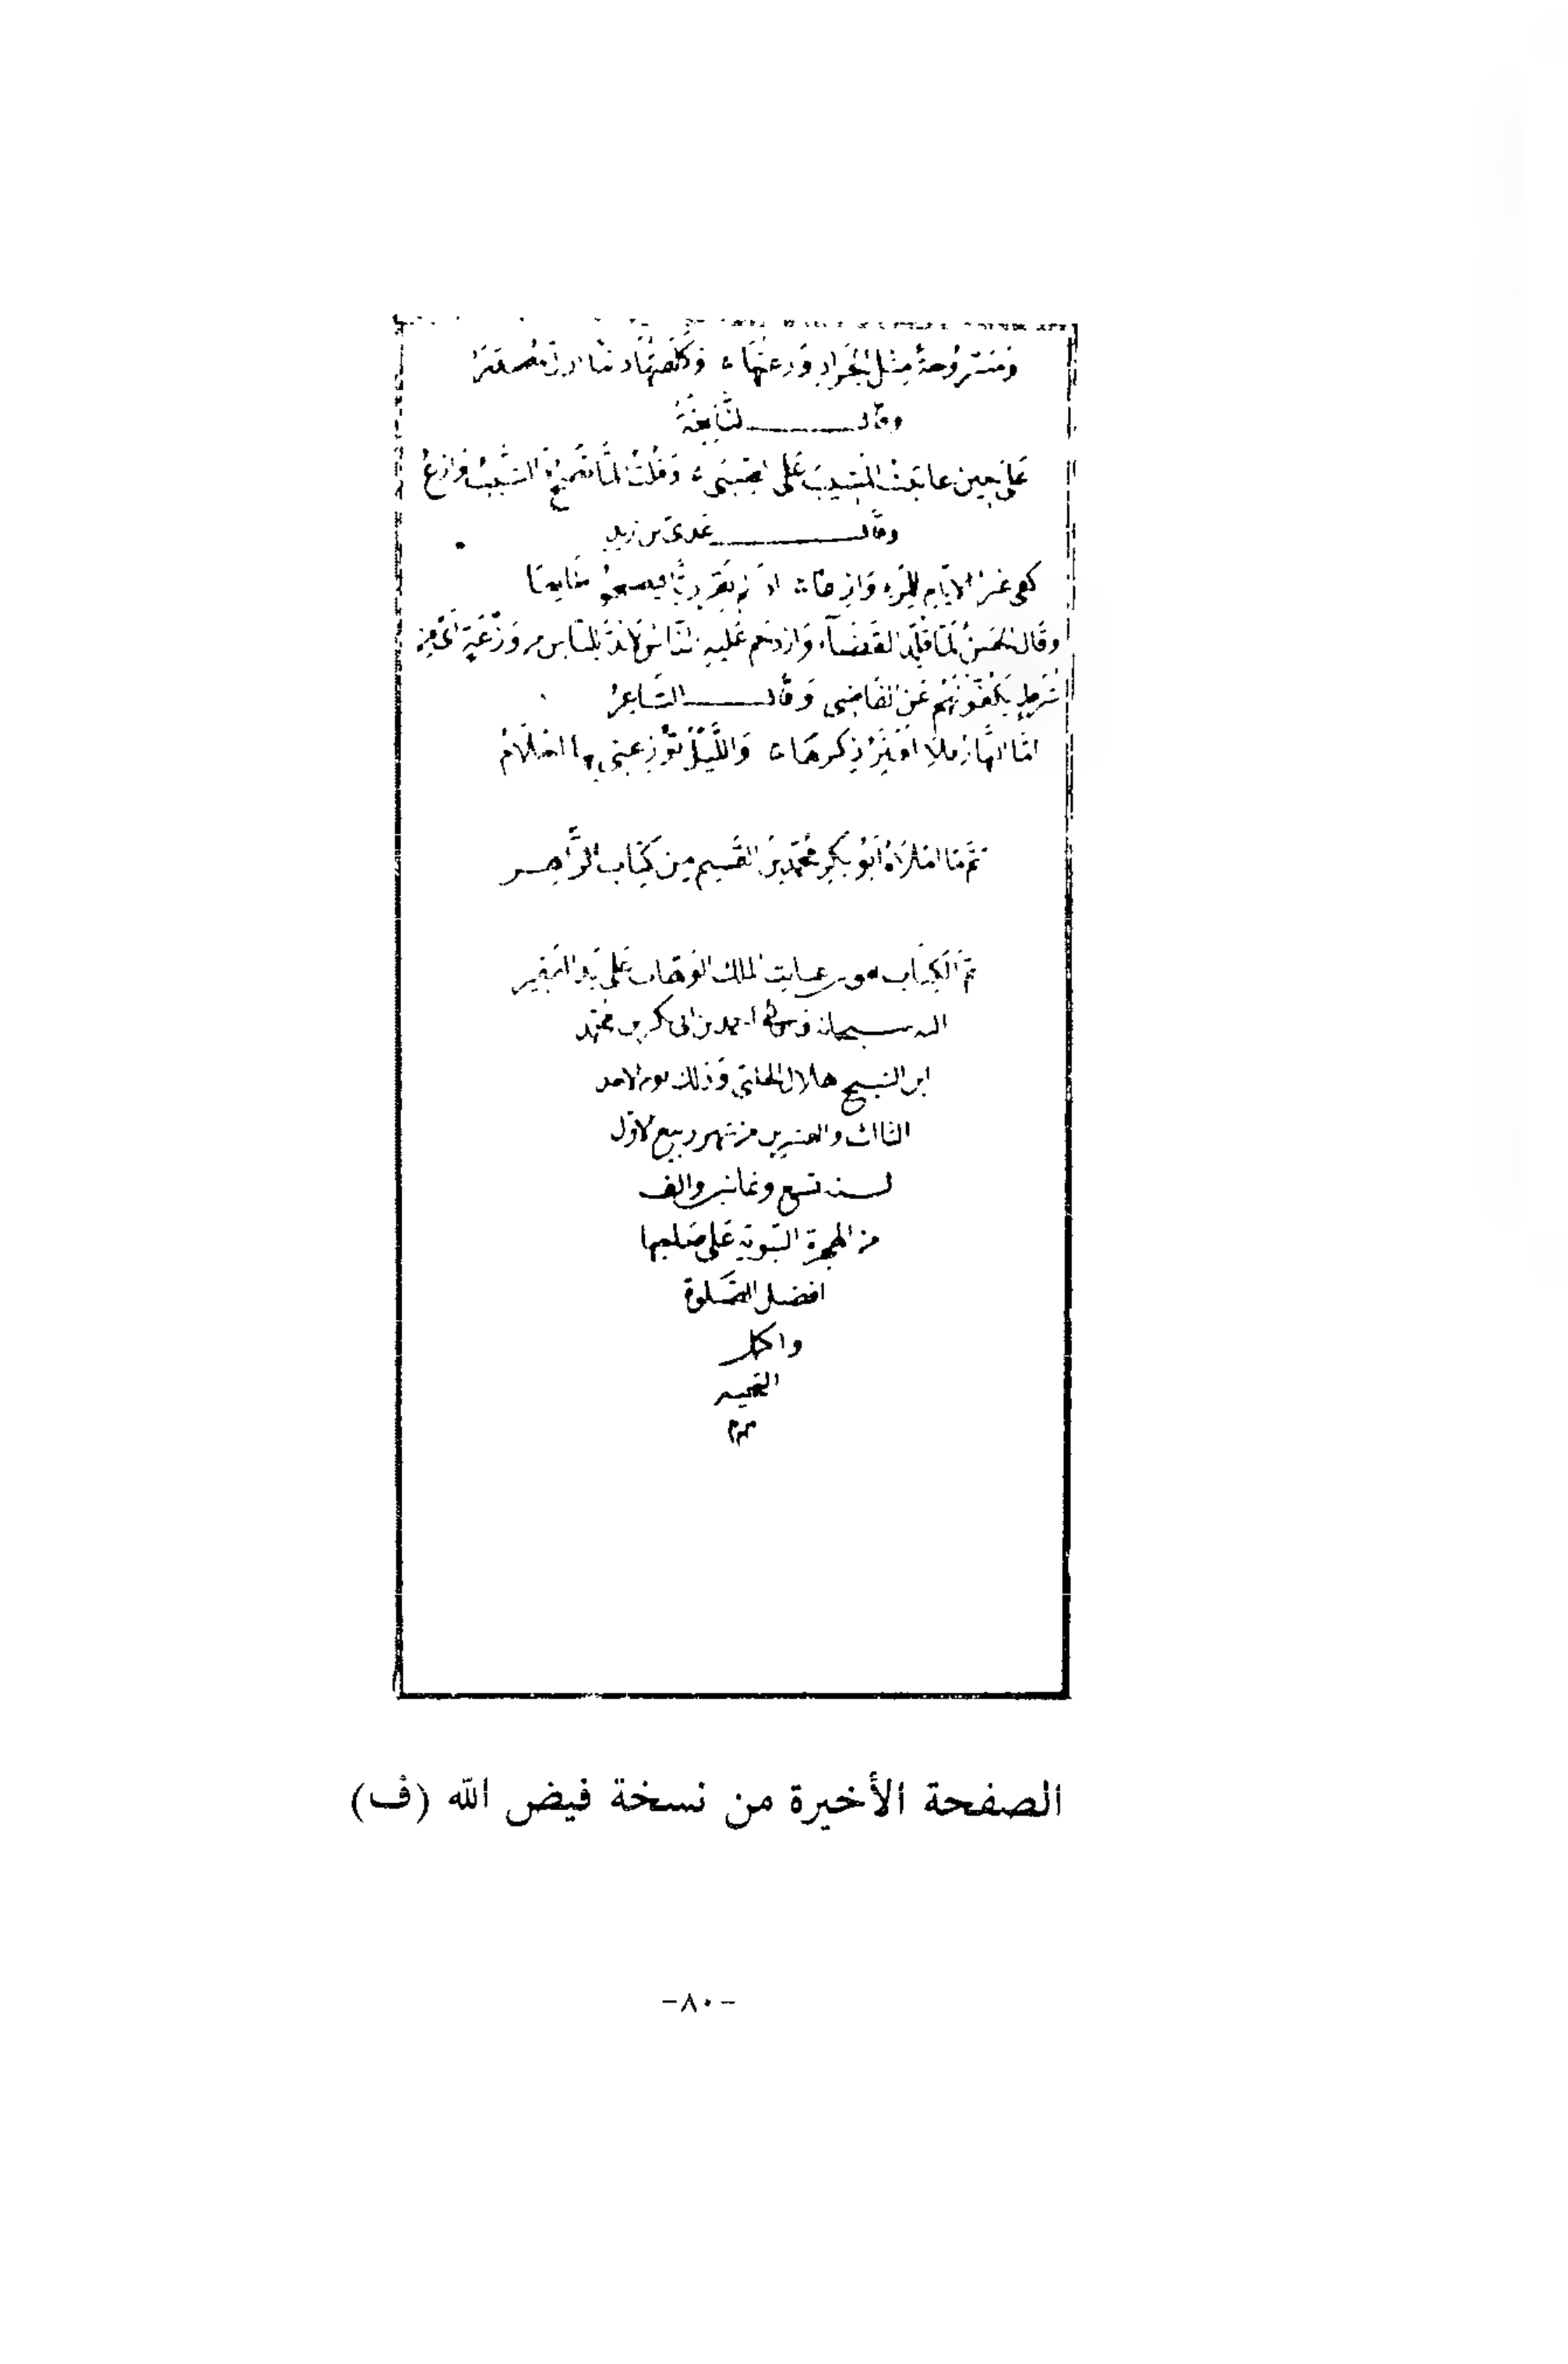 ومسروحة مثل الجراد وزعتها وكلفتها
وقال النابغة
على حين عاتبت المشيب على الصبى وقلت ألما تصح والشيب وازع
وقال عدي بن زيد
كفى غير الايام للمرء وازعا اذا لم يقر ريا فيصحو طايعا
وقال الحسن لما قلد القضآء وازدحم عليه الناس لا بد للناس من وزعة اي من
شرط يكفونهم عن القاضي وقال الشاعر
اما النهار فلا افتر ذكرها والليل توزعني بها احلام
تم ما املاه ابو بكر محمد بن القسم من كتاب الزاهر
تم الكتاب بعون عناية الملك الوهاب على يد الفقير
الله سبحانه احمد بن ابى بكر بن محمد
ابن الشيخ هلال الحلبي وذلك يوم الاحد
الثالث والعشرين من شهر ربيع الاول
لسنة تسع وثمانين والف
من الهجرة النبوية على صاحبها
افضل الصلوة
واكمل
التحيه
الصفحة الأخيرة من نسخة فيض الله (ف)
-٨٠-